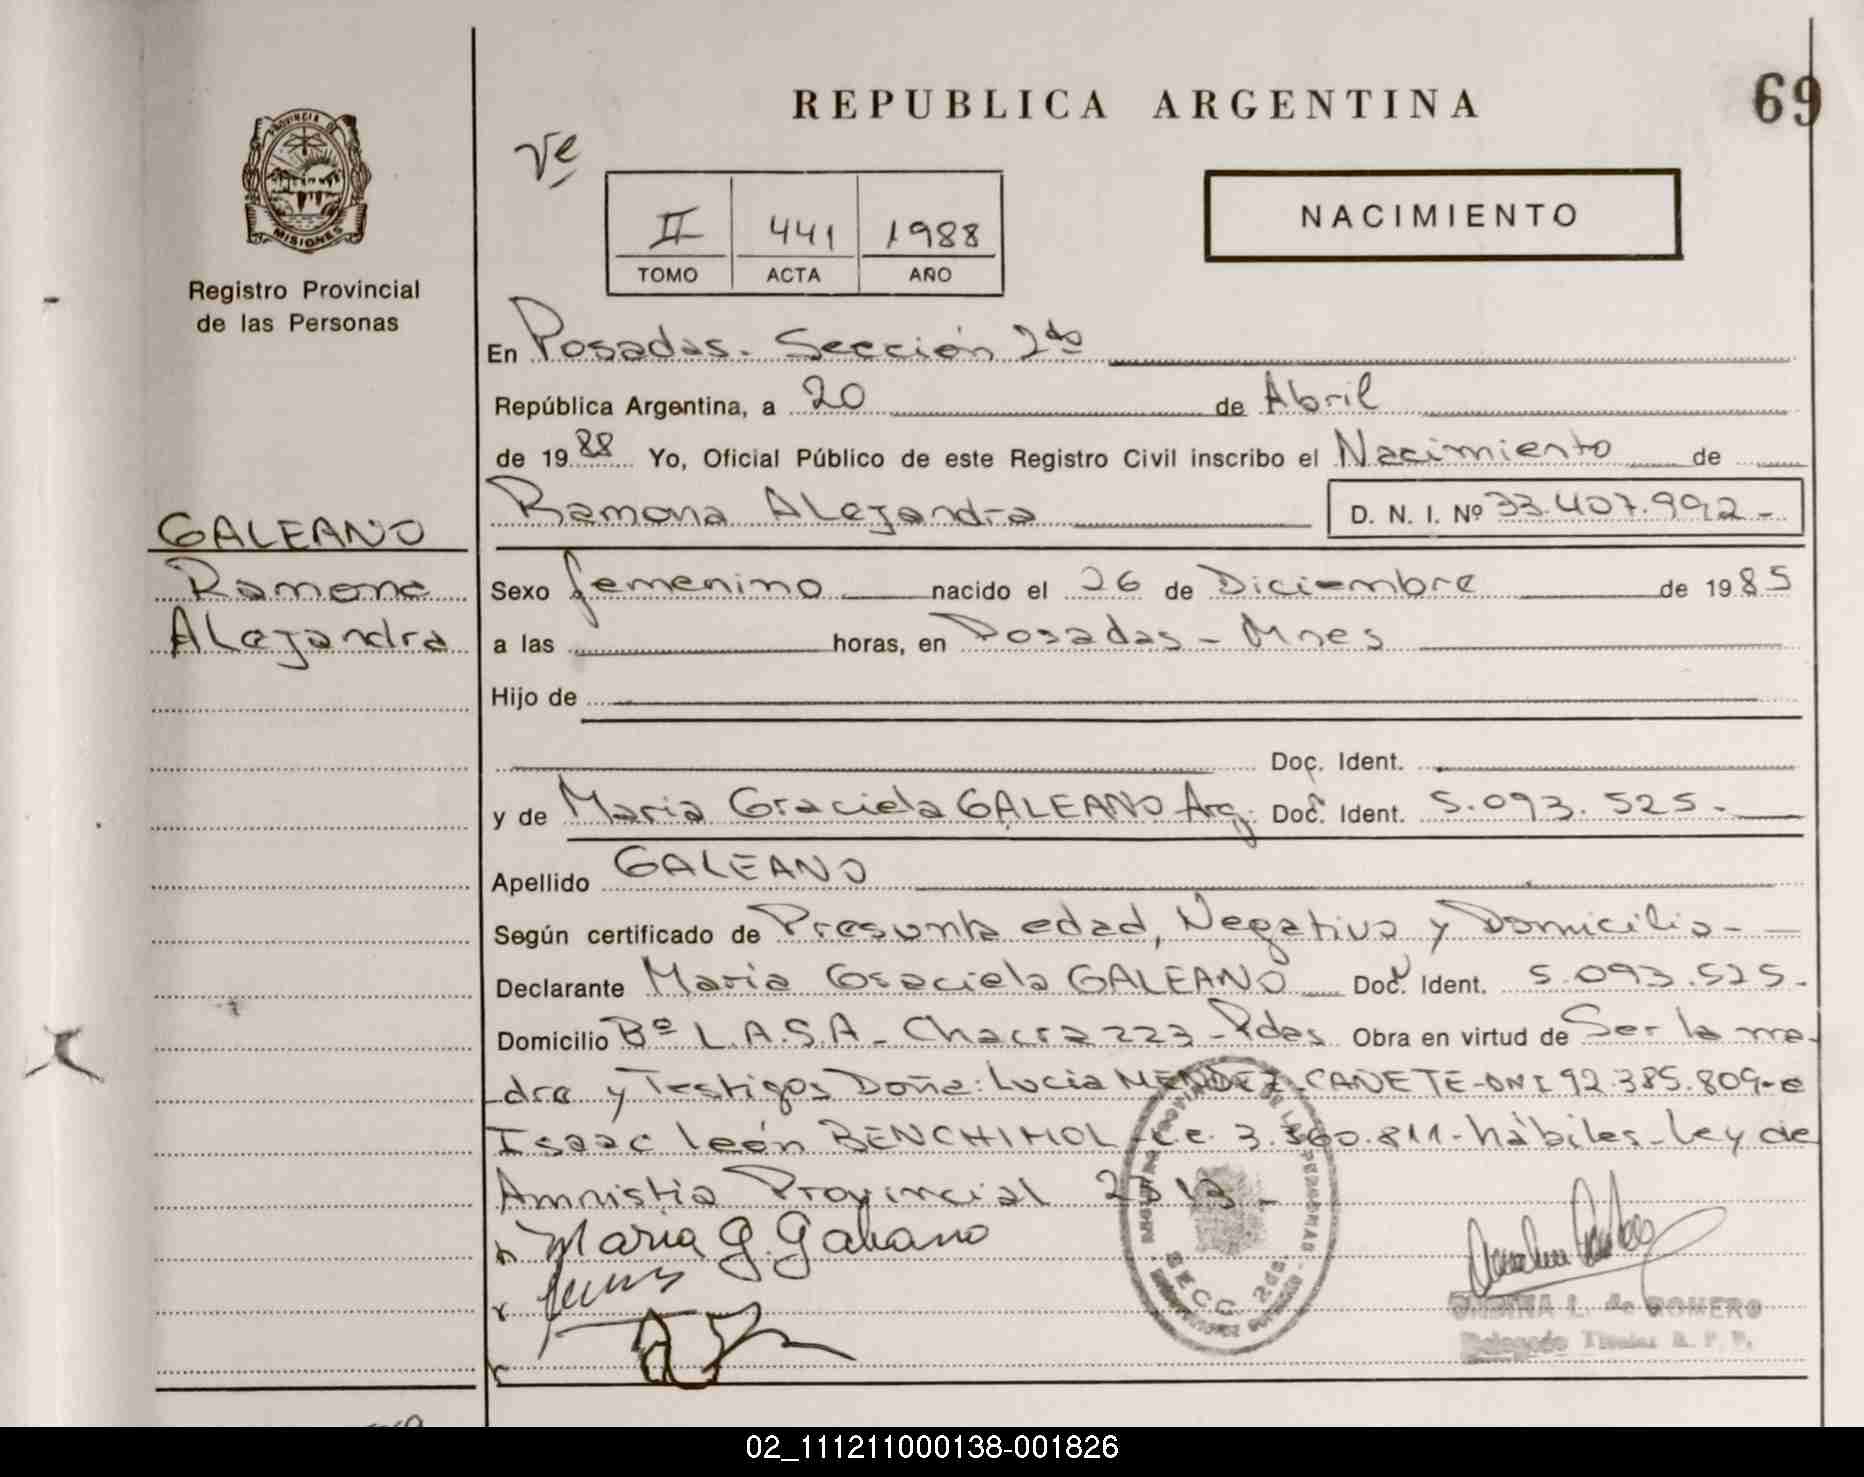 REPUBLICA ARGENTINA
69
PROVINCIA DE
MISIONES
Registro Provincial
de las Personas
II 441 1988
TOMO ACTA AÑO
NACIMIENTO
En Posadas. Sección 2da
República Argentina, a 20 de Abril
de 1988 Yo, Oficial Público de este Registro Civil inscribo el Nacimiento de
Ramona Alejandra D. N. I. Nº 33.407.992-
GALEANO
Ramona
Alejandra
Sexo femenino nacido el 26 de Diciembre de 1985
a las horas, en Posadas - Mnes
Hijo de
Doc. Ident.
y de Maria Graciela GALEANO Arg. Doc. Ident. 5.093.525.-
Apellido GALEANO
Según certificado de Presunta edad, Negativo y Domicilio-
Declarante Maria Graciela GALEANO Doc. Ident. 5.093.525-
Domicilio Bº L.A.S.A - Chacra 223 - Pdas Obra en virtud de Ser la ma-
dre y Testigos Doña: Lucia MENDEZ CAÑETE-DNI 92.385.809-e
Isaac león BENCHIMOL-C.e. 3.360.811-hábiles-ley de
Amnistia Provincial
Maria G. Galeano
SECC. 2da.
ONDINA L. de ROMERO
Delegado Titular R. P. P.
02_111211000138-001826